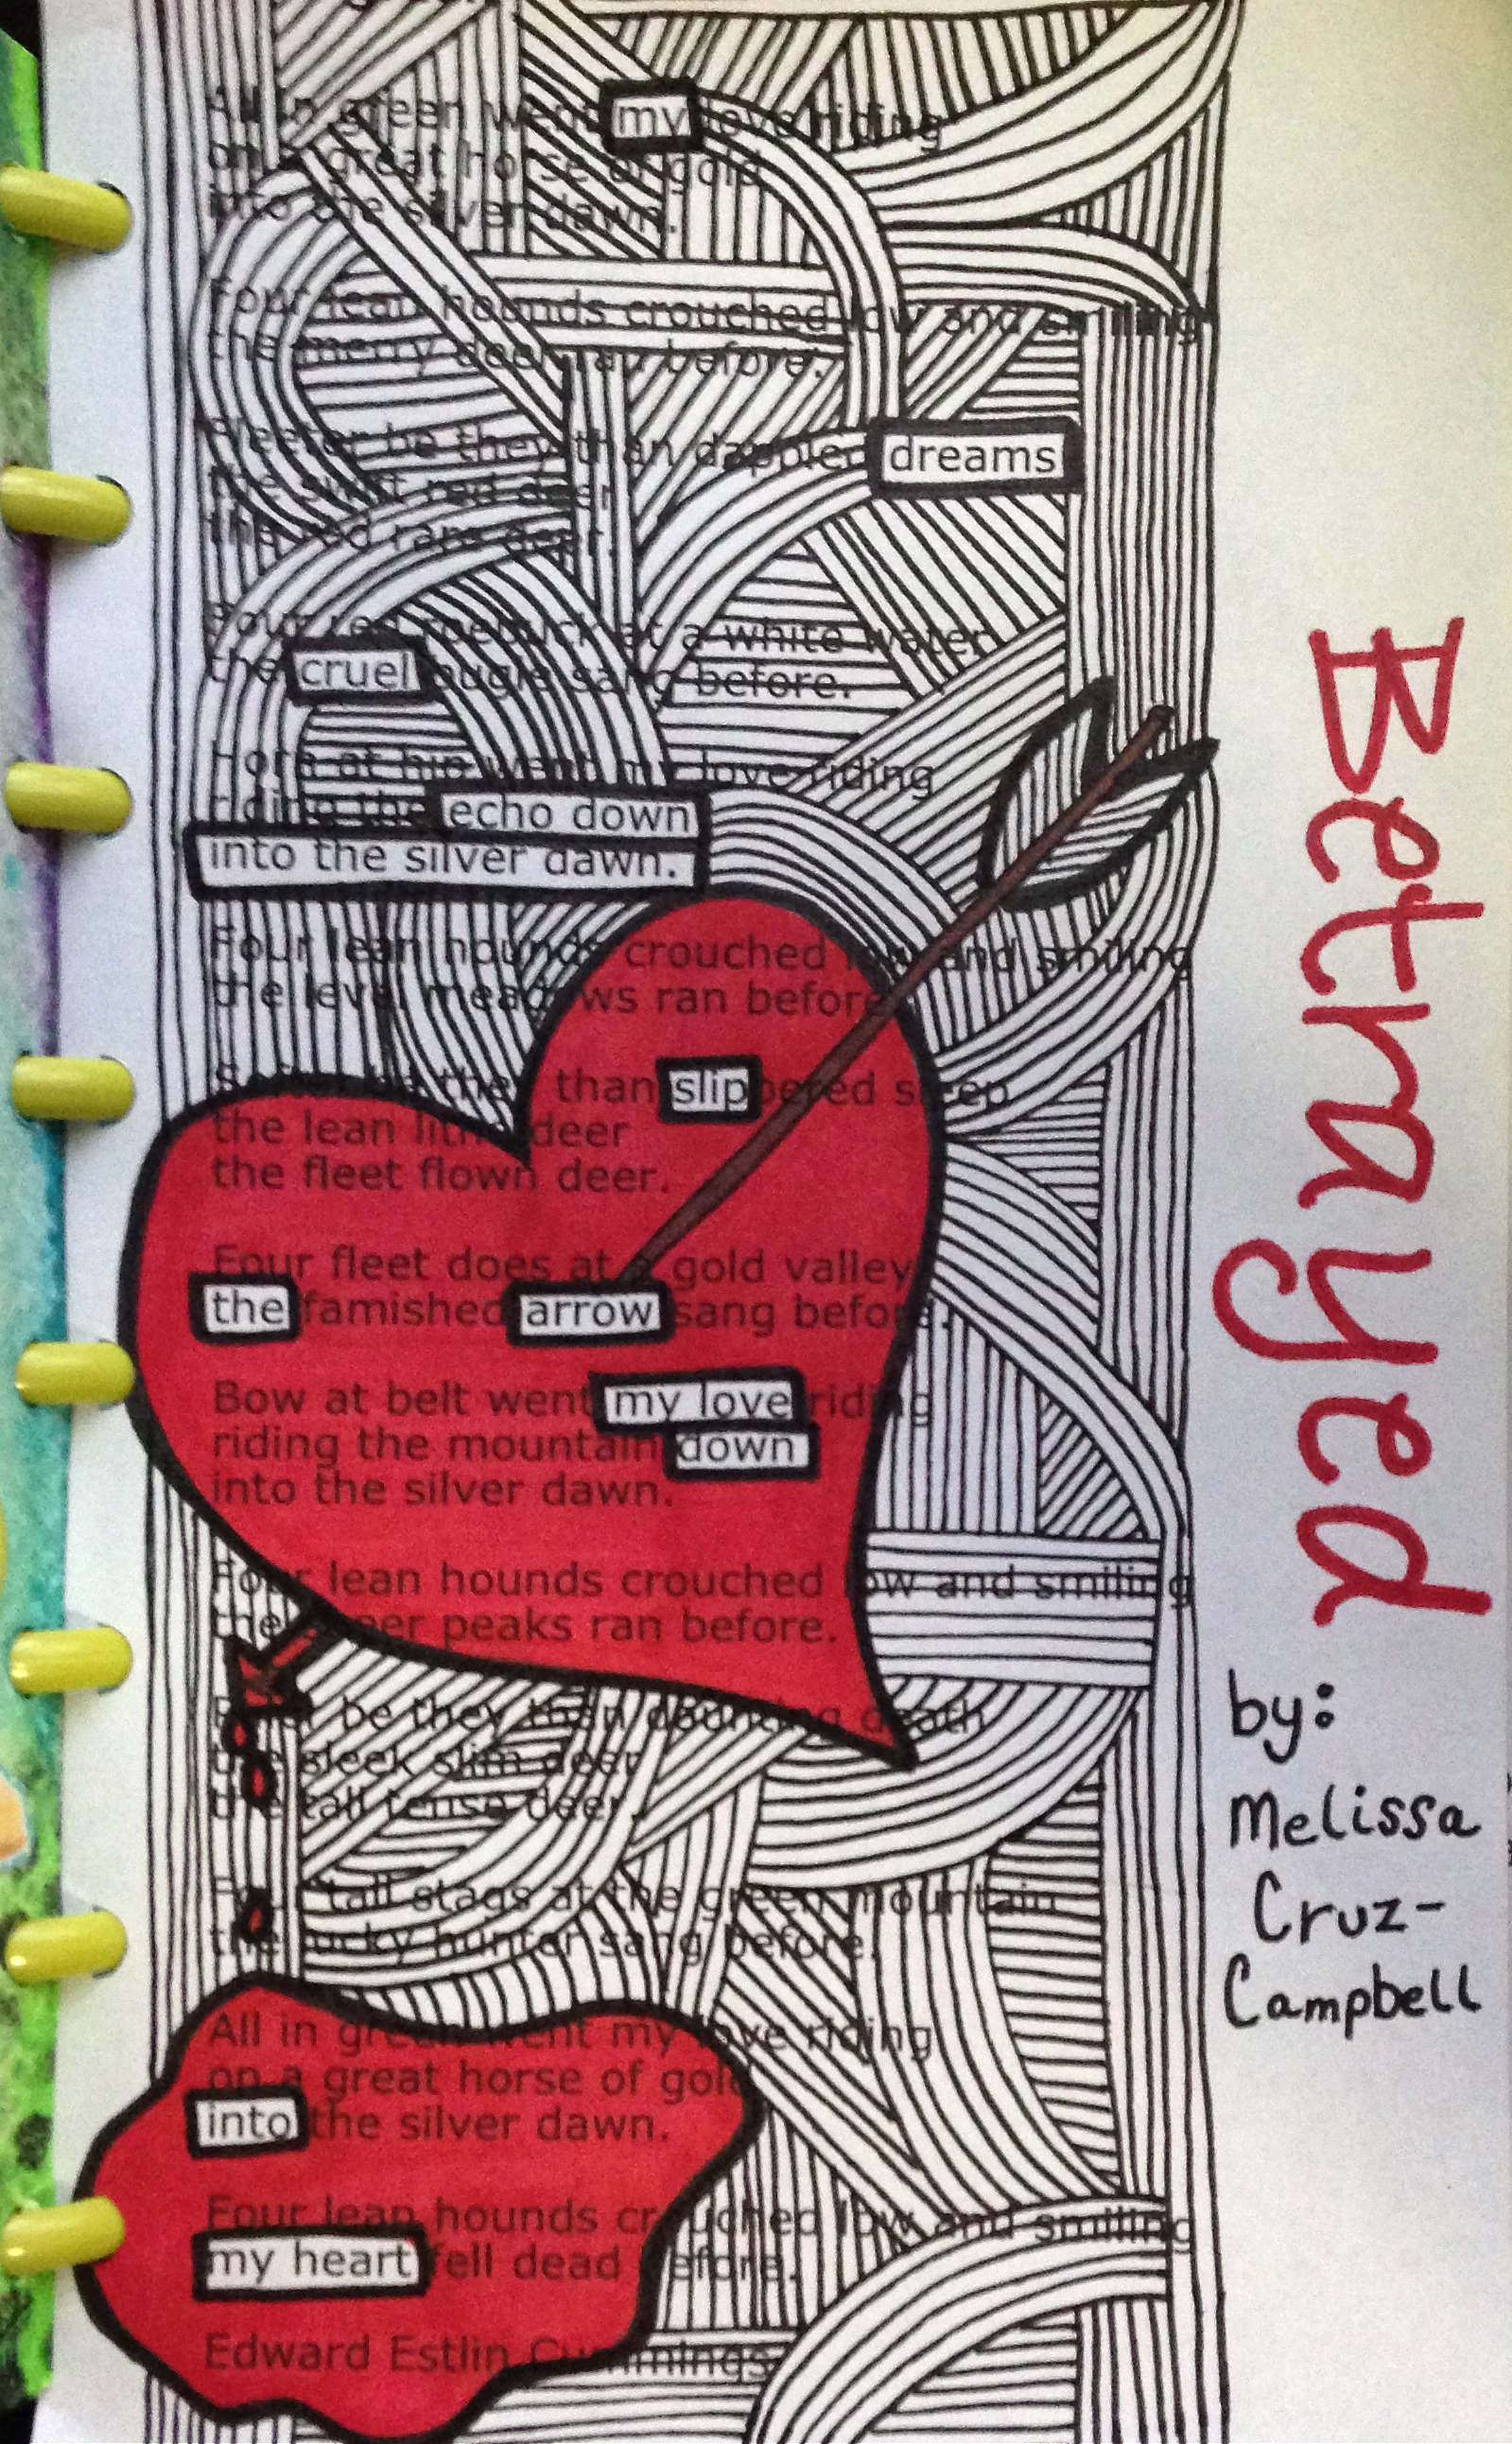 All in green went my love riding
on a great horse of gold
into the silver dawn.
Four lean hounds crouched low and smiling
the merry deer ran before.
Fleeter be they than dappled dreams
the swift red deer
the red rare deer.
Four red roebuck at a white water
the cruel bugle sang before.
Horn at hip went my love riding
riding the echo down
into the silver dawn.
Four lean hounds crouched low and smiling
the level meadows ran before.
Softer be they than slippered sleep
the lean lithe deer
the fleet flown deer.
Four fleet does at a gold valley
the famished arrow sang before.
Bow at belt went my love riding
riding the mountain down
into the silver dawn.
Four lean hounds crouched low and smiling
the sheer peaks ran before.
Paler be they than daunting death
the sleek slim deer
the tall tense deer.
Four tall stags at the green mountain
the lucky hunter sang before.
All in green went my love riding
on a great horse of gold
into the silver dawn.
Four lean hounds crouched low and smiling
my heart fell dead before.
Edward Estlin Cummings
Betrayed
by:
Melissa
Cruz-
Campbell